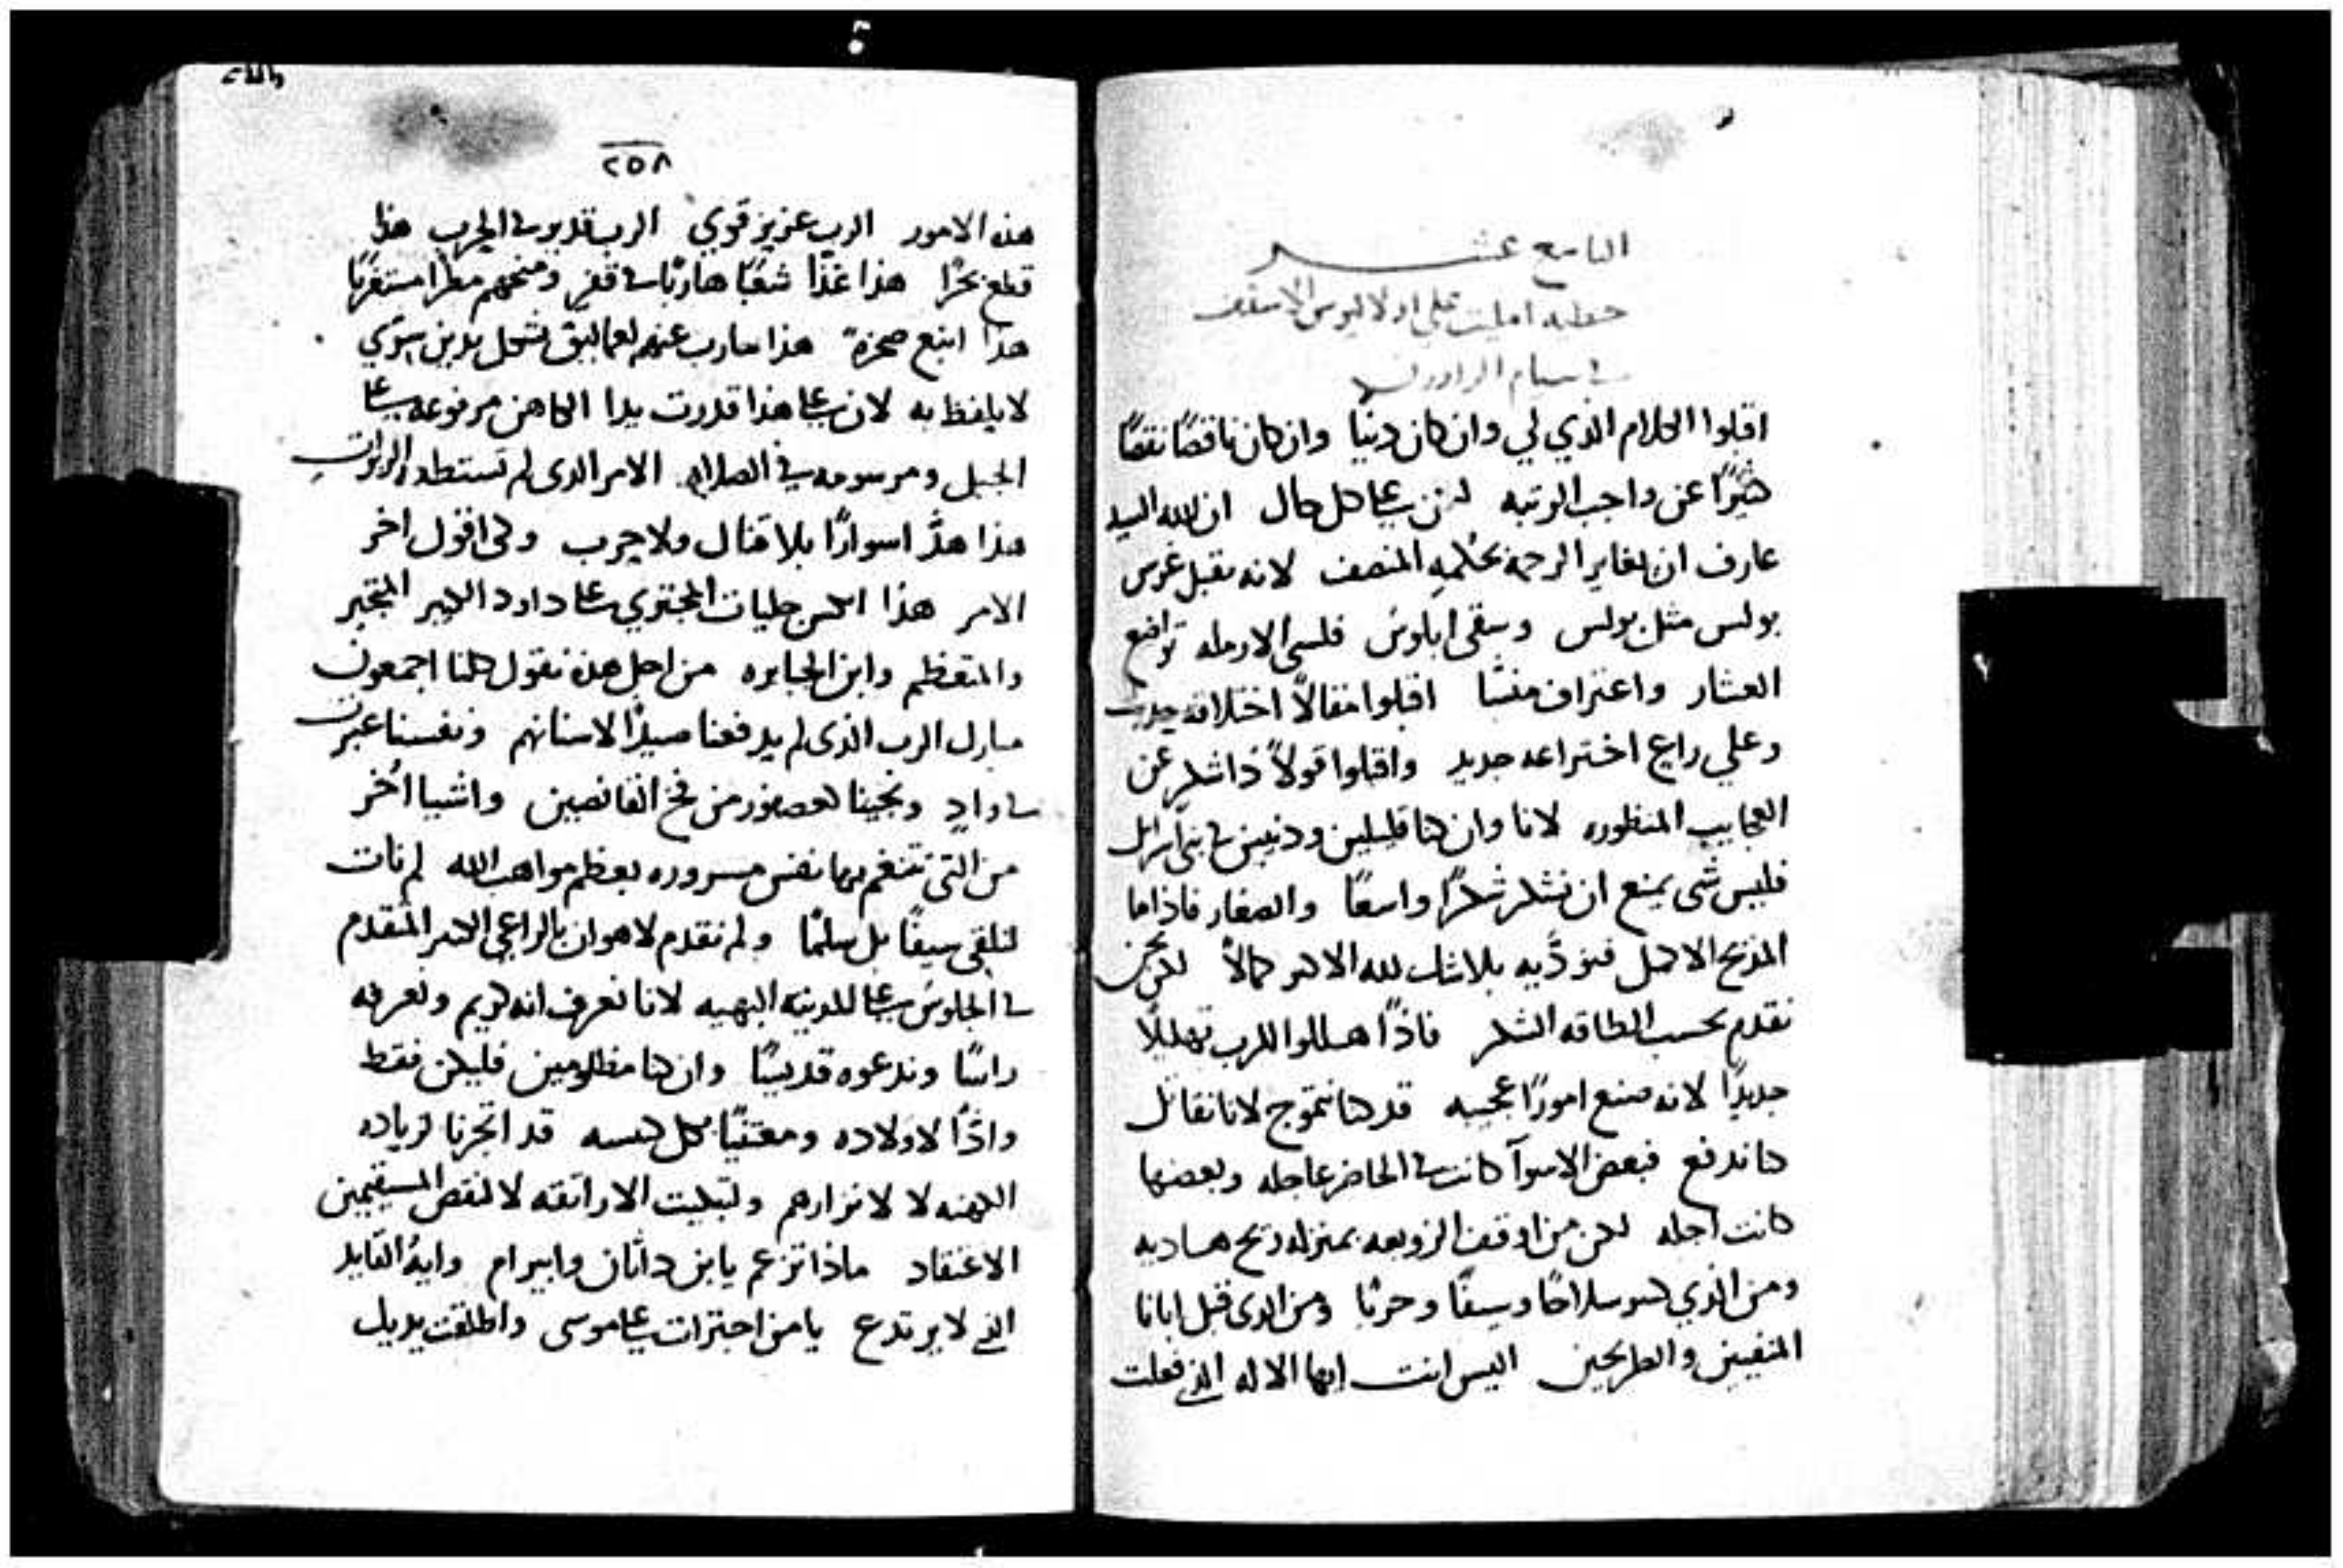 التاسع عشر
خطبه امليت على اولاليوس الاسقف
اقبلوا الكلام الذي لي وان كان دنيا وان كان ناقصًا نقصًا
كثيرًا عن واجب الرتبه لكن على كل حال ان الله السيد
عارف ان يغاير الرحمه بحكمه المنصف لانه يقبل غرس
بولس مثل بولس وسقى ابلوس فلسي الارمله تواضع
العشار واعتراف منشا اقبلوا مقالاً اختلاقه جديد
وعلي راع اختراعه جديد واقبلوا قولاً ذا شكر عن
العجايب المنظوره لانا وان كنا قليلين ودنيين في بني اسرايل
فليس شى يمنع ان نشكر شكرًا واسعًا والصغار فاذا ما
المديح الاكمل فنودّيه بلا شك لله الاكبر كمالاً لكن نحن
نقدم بحسب الطاقه الشكر فاذًا هللوا للرب تهليلًا
جديدًا لانه صنع امورًا عجيبه قد كنا نتموج لانا نقاتل
كنا ندفع فبعض الاسوآ كانت في الحاضر عاجله وبعضها
كانت اجله لكن من اوقف الزوبعه بمنزله ريح هاديه
ومن الذي كسر سلاحًا وسيفًا وحربًا ومن الذى قبل ايانا
المنفيين والطريحين اليس انت ايها الاله الذي فعلت
٢٥٨
هذه الامور الرب عزيز قوي الرب قدير في الحرب هذا
قطع بحرًا هذا غذا شعبًا هاربًا في قفر ومنحهم مطرا مستغربًا
هذا انبع صخرة هذا حارب عنهم لعماليق بشكل يدين سري
لا يلفظ به لان على هذا قدرت يدا الكاهن مرفوعه على
الجبل ومرسومه في الصلاه الامر الذى لم تستطعه الربوات
هذا هدّ اسوارًا بلا قتال ولا حرب ولكى اقول اخر
الامر هذا اكسر جليات المجتري على داود الكبير المتجبر
والمتعظم وابن الجبابره من اجل هذه نقول كلنا اجمعون
مبارك الرب الذى لم يدفعنا صيدًا لاسنانهم ونفسنا عبرت
في وادٍ ونجينا كعصفور من فخ القانصين واشيا اُخر
من التى تتنغم بها نفس مسروره بعظم مواهب الله لم نات
لنلقي سيفًا بل سلمًا ولم نقدم لاهوان بالراعي الكبير المتقدم
في الجلوس على المدينه البهيه لانا نعرف انه كريم ونعرفه
راسًا وندعوه قديسًا وان كنا مظلومين فليكن فقط
وادًا لاولاده ومعتنيًا بكل كنيسه قد اتجرنا لزياده
الكهنه لا لانزارهم ولتبكيت الاراتقه لا لنقص المستقيمين
الاعتقاد ماذا تزعم يابن داثان وابيرام وايه القايد
الذي لا يرتدع يا من اجترات على موسى واطلقت يديك